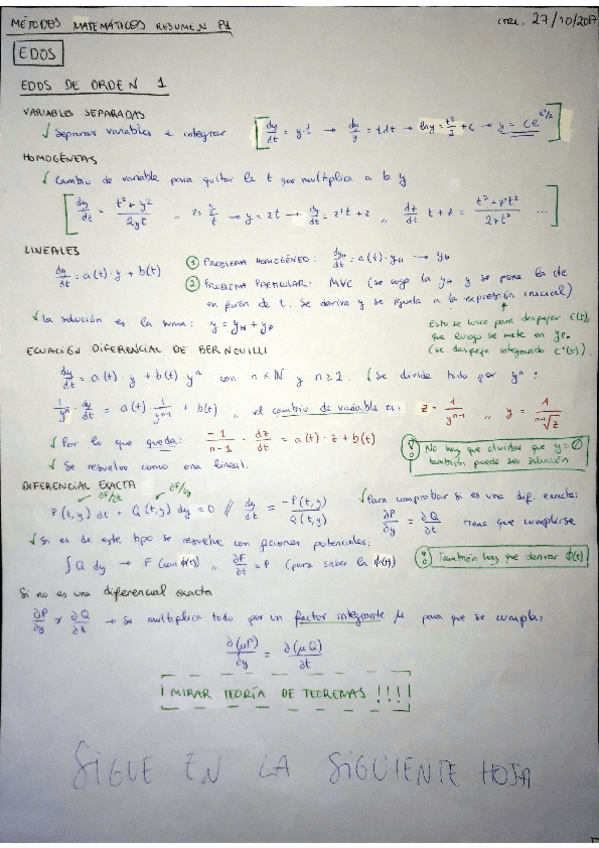 MÉTODOS MATEMÁTICOS RESUMEN P1
27/10/2017
EDOS
EDOS DE ORDEN 1
VARIABLES SEPARADAS
✓ Separar variables e integrar [dy/dt = y·t → dy/y = t dt → ln y = t²/2 + C → y = Ce^(t²/2)]
HOMOGÉNEAS
✓ Cambio de variable para quitar la t que multiplica a la y
[dy/dt = (t² + y²)/(2yt) ,, z = y/t → y = zt → dy/dt = z't + z ,, dz/dt t + z = (t² + z²t²)/(2zt²) ...]
LINEALES
dy/dt = a(t)·y + b(t)
① PROBLEMA HOMOGÉNEO: dyH/dt = a(t)·yH → yH
② PROBLEMA PARTICULAR: MVC (se coge la yH y se pone la de
en función de t. Se deriva y se iguala a la expresión inicial)
✓ la solución es la suma: y = yH + yP
Esto se hace para despejar C(t),
que luego se mete en yP.
(se despeja integrando C'(t)).
ECUACIÓN DIFERENCIAL DE BERNOUILLI
dy/dt = a(t)·y + b(t) yⁿ con n ∈ ℕ y n ≥ 2. ✓ Se divide todo por yⁿ:
1/yⁿ · dy/dt = a(t)· 1/yⁿ⁻¹ + b(t) ,, el cambio de variable es: z = 1/yⁿ⁻¹ ,, y = 1/ⁿ⁻¹√z
✓ Por lo que queda: -1/(n-1) · dz/dt = a(t)·z + b(t)
✓ Se resuelve como una lineal.
No hay que olvidar que y = 0
también puede ser solución
DIFERENCIAL EXACTA
∂F/∂t ∂F/∂y
P(t,y) dt + Q(t,y) dy = 0 // dy/dt = -P(t,y)/Q(t,y)
✓ Para comprobar si es una dif. exacta:
∂P/∂y = ∂Q/∂t tiene que cumplirse
✓ Si es de este tipo se resuelve con funciones potenciales:
∫Q dy → F (con ϕ(t)) ,, ∂F/∂t = P (para saber la ϕ(t))
También hay que derivar ϕ(t)
Si no es una diferencial exacta
∂P/∂y ≠ ∂Q/∂t → Se multiplica todo por un factor integrante μ para que se cumpla:
∂(μP)/∂y = ∂(μQ)/∂t
¡MIRAR TEORÍA DE TEOREMAS !!!!
SIGUE EN LA SIGUIENTE HOJA